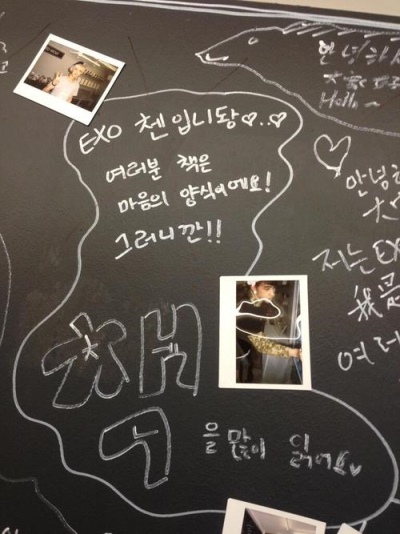 EXO 첸입니당♡..♡
여러분 책은
마음의 양식이에요!
그러니깐!!
책
을 많이 읽어요♥
안녕하
Hello~
안녕하
저는 EX
我是
여러